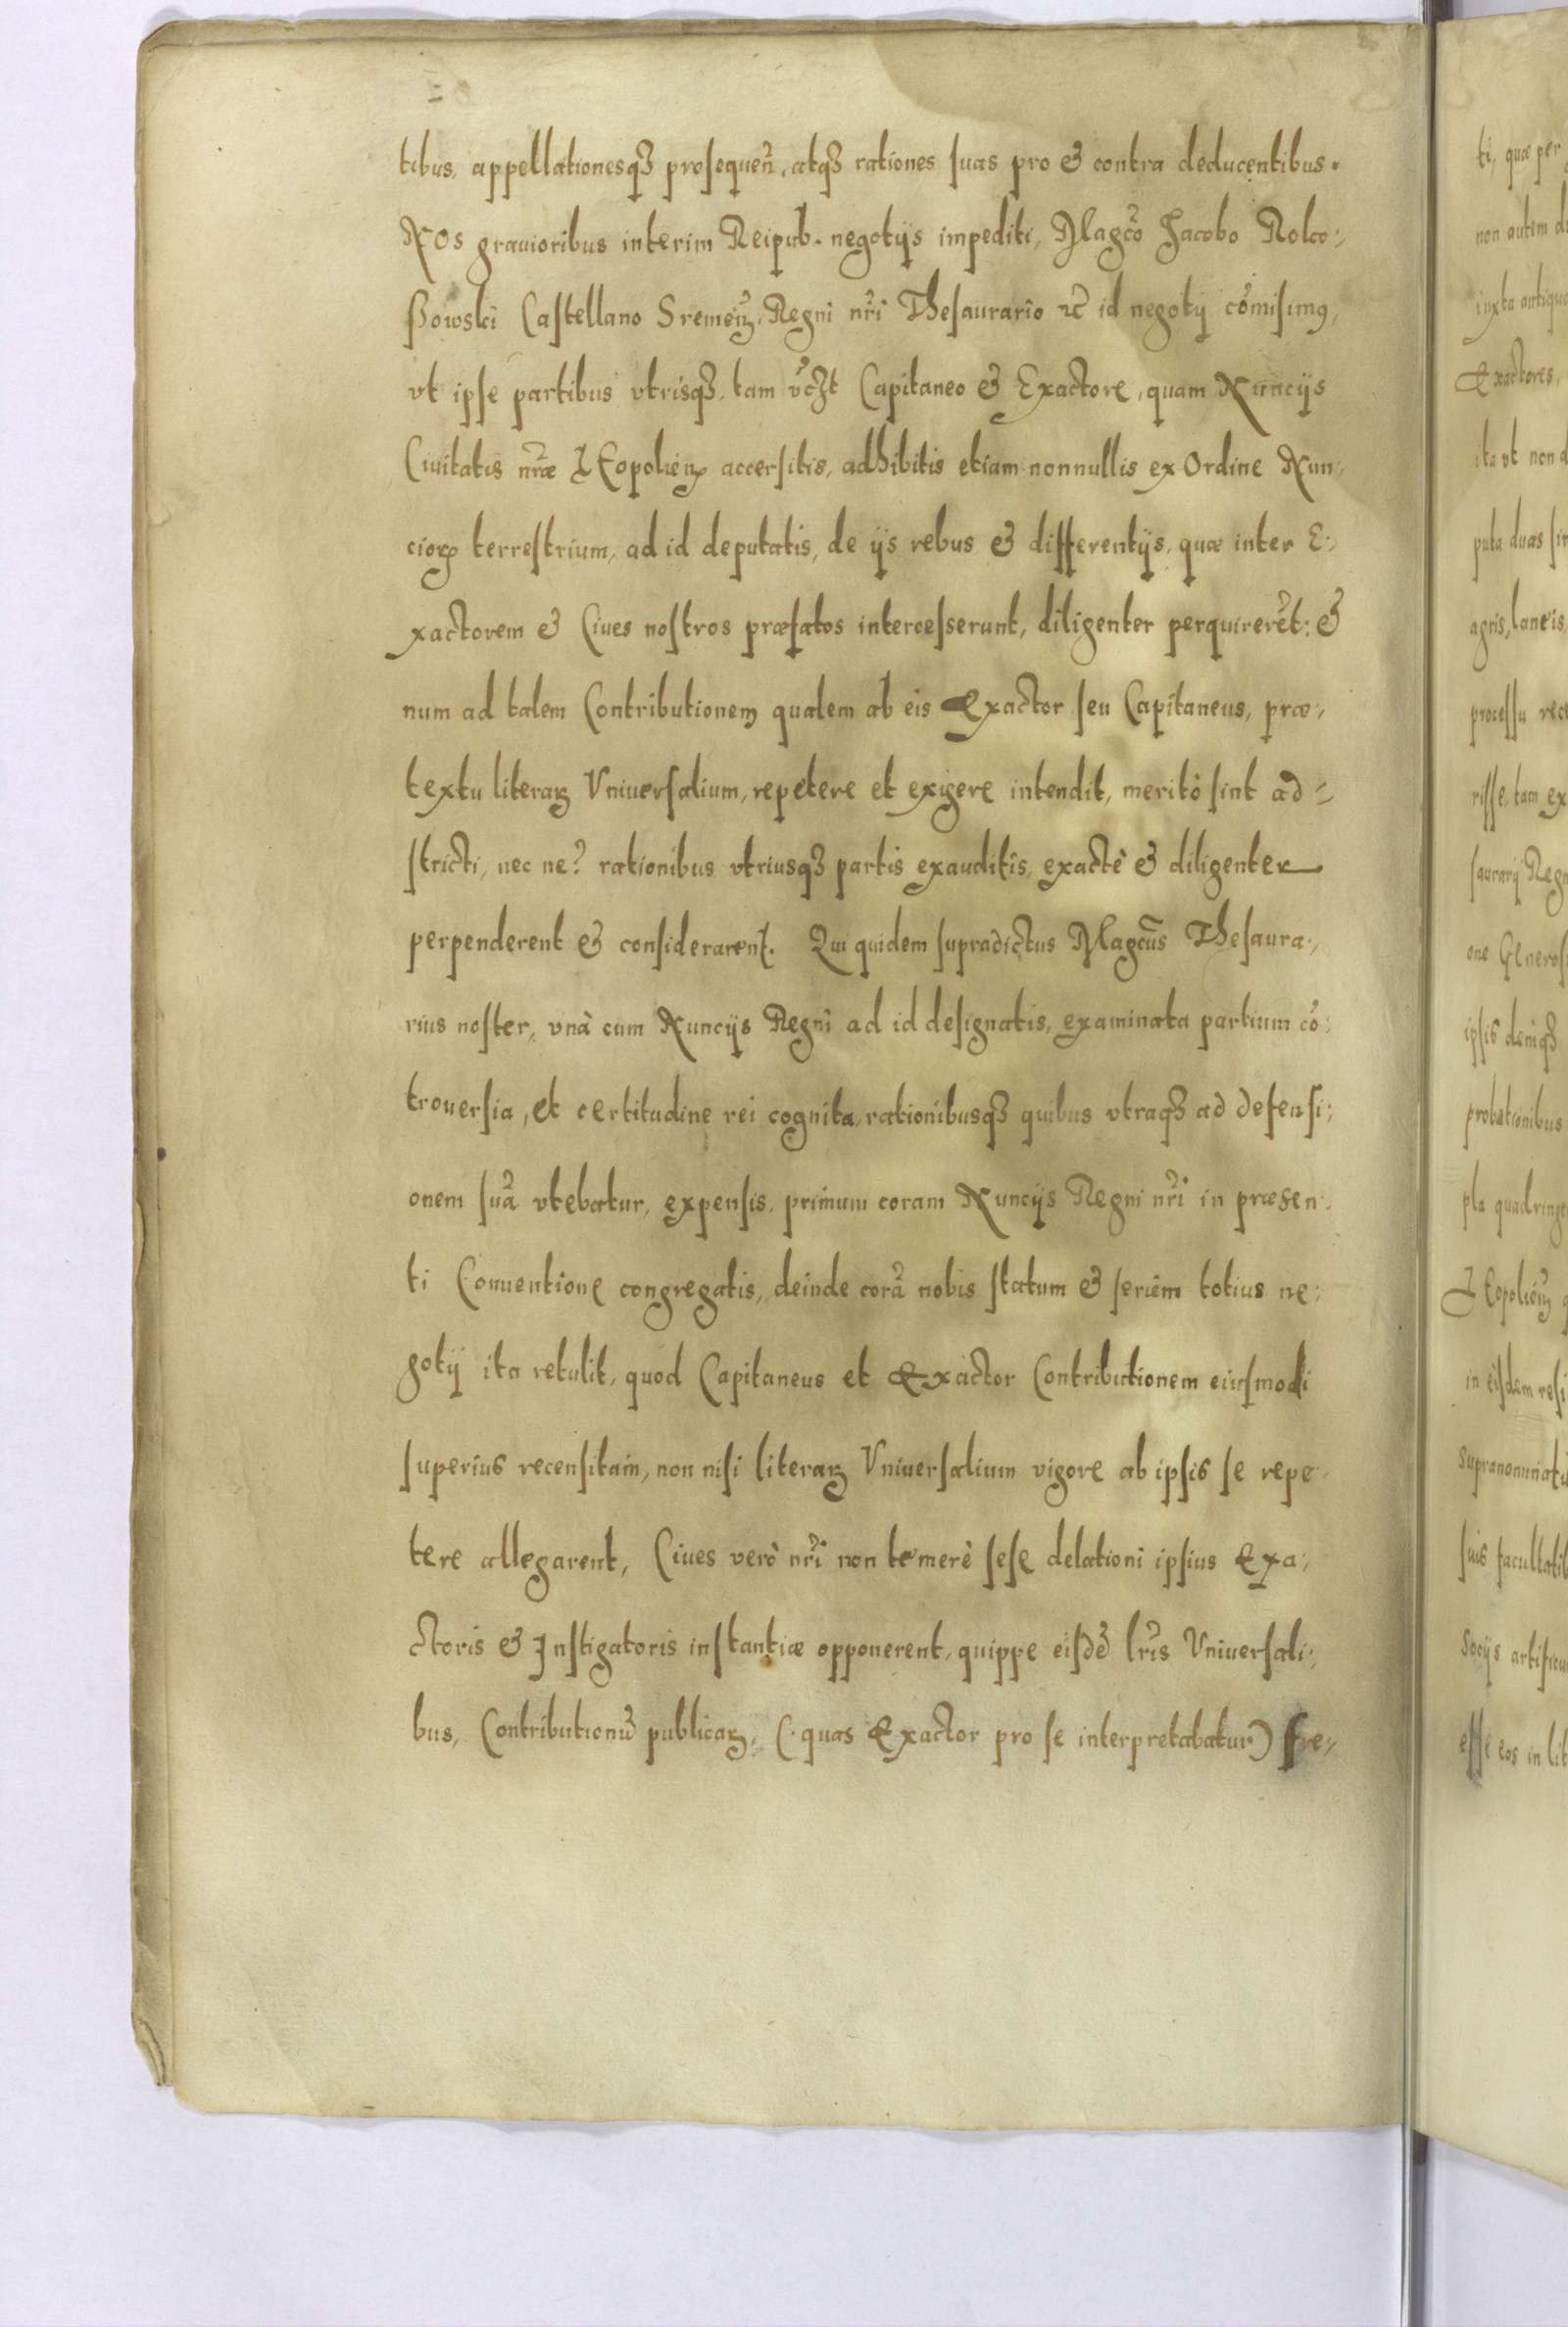 tibus, appellationesq₃ prosequeñ, atq₃ rationes suas pro & contra deducentibus.
NOs grauioribus interim Reipub. negotijs impediti, Magco Jacobo Roko-
ssowski Castellano Sremeñ, Regni nri Thesaurario &c id negotij comisimus,
vt ipse partibus vtrisq₃, tam vczt Capitaneo & Exactore, quam Nuncijs
Ciuitatis nræ LEopolieñ accersitis, adhibitis etiam nonnullis ex Ordine Nun-
cioꝝ terrestrium, ad id deputatis, de ijs rebus & differentijs, quæ inter E-
xactorem & Ciues nostros præfatos intercesserunt, diligenter perquireret: &
num ad talem Contributionem qualem ab eis Exactor seu Capitaneus, præ-
textu literaꝝ Vniuersalium, repetere et exigere intendit, meritò sint ad-
stricti, nec ne? rationibus vtriusq₃ partis exauditis, exactè & diligenter
perpenderent & considerarent. Qui quidem supradictus Magcus Thesaura-
rius noster, vnà cum Nuncijs Regni ad id designatis, examinata partium cõ-
trouersia, et certitudine rei cognita, rationibusq₃ quibus vtraq₃ ad defensi-
onem suã vtebatur, expensis, primum coram Nuncijs Regni nri in præsen-
ti Conuentione congregatis, deinde corã nobis statum & seriem totius ne-
gotij ita retulit, quod Capitaneus et Exactor Contributionem eiusmodi
superius recensitam, non nisi literaꝝ Vniuersalium vigore ab ipsis se repe-
tere allegarent, Ciues verò nri non temerè sese delationi ipsius Exa-
ctoris & Instigatoris instantiæ opponerent, quippe eisdẽ lris Vniuersali-
bus, Contributionũ publicaꝝ, (quas Exactor pro se interpretabatur) fre-
ti, quæ per
non autem
iuxta antiqu
Exactores,
ita vt non
puta duas
agris, laneis,
processu
risse, tam ex
saurarij Regn
one Generos
ipsis deniq₃
probationibus
pla quadringe
LEopolieñ
in eisdem resi
supranominatu
suis facultatib
Socijs artificu
esse eos in lit